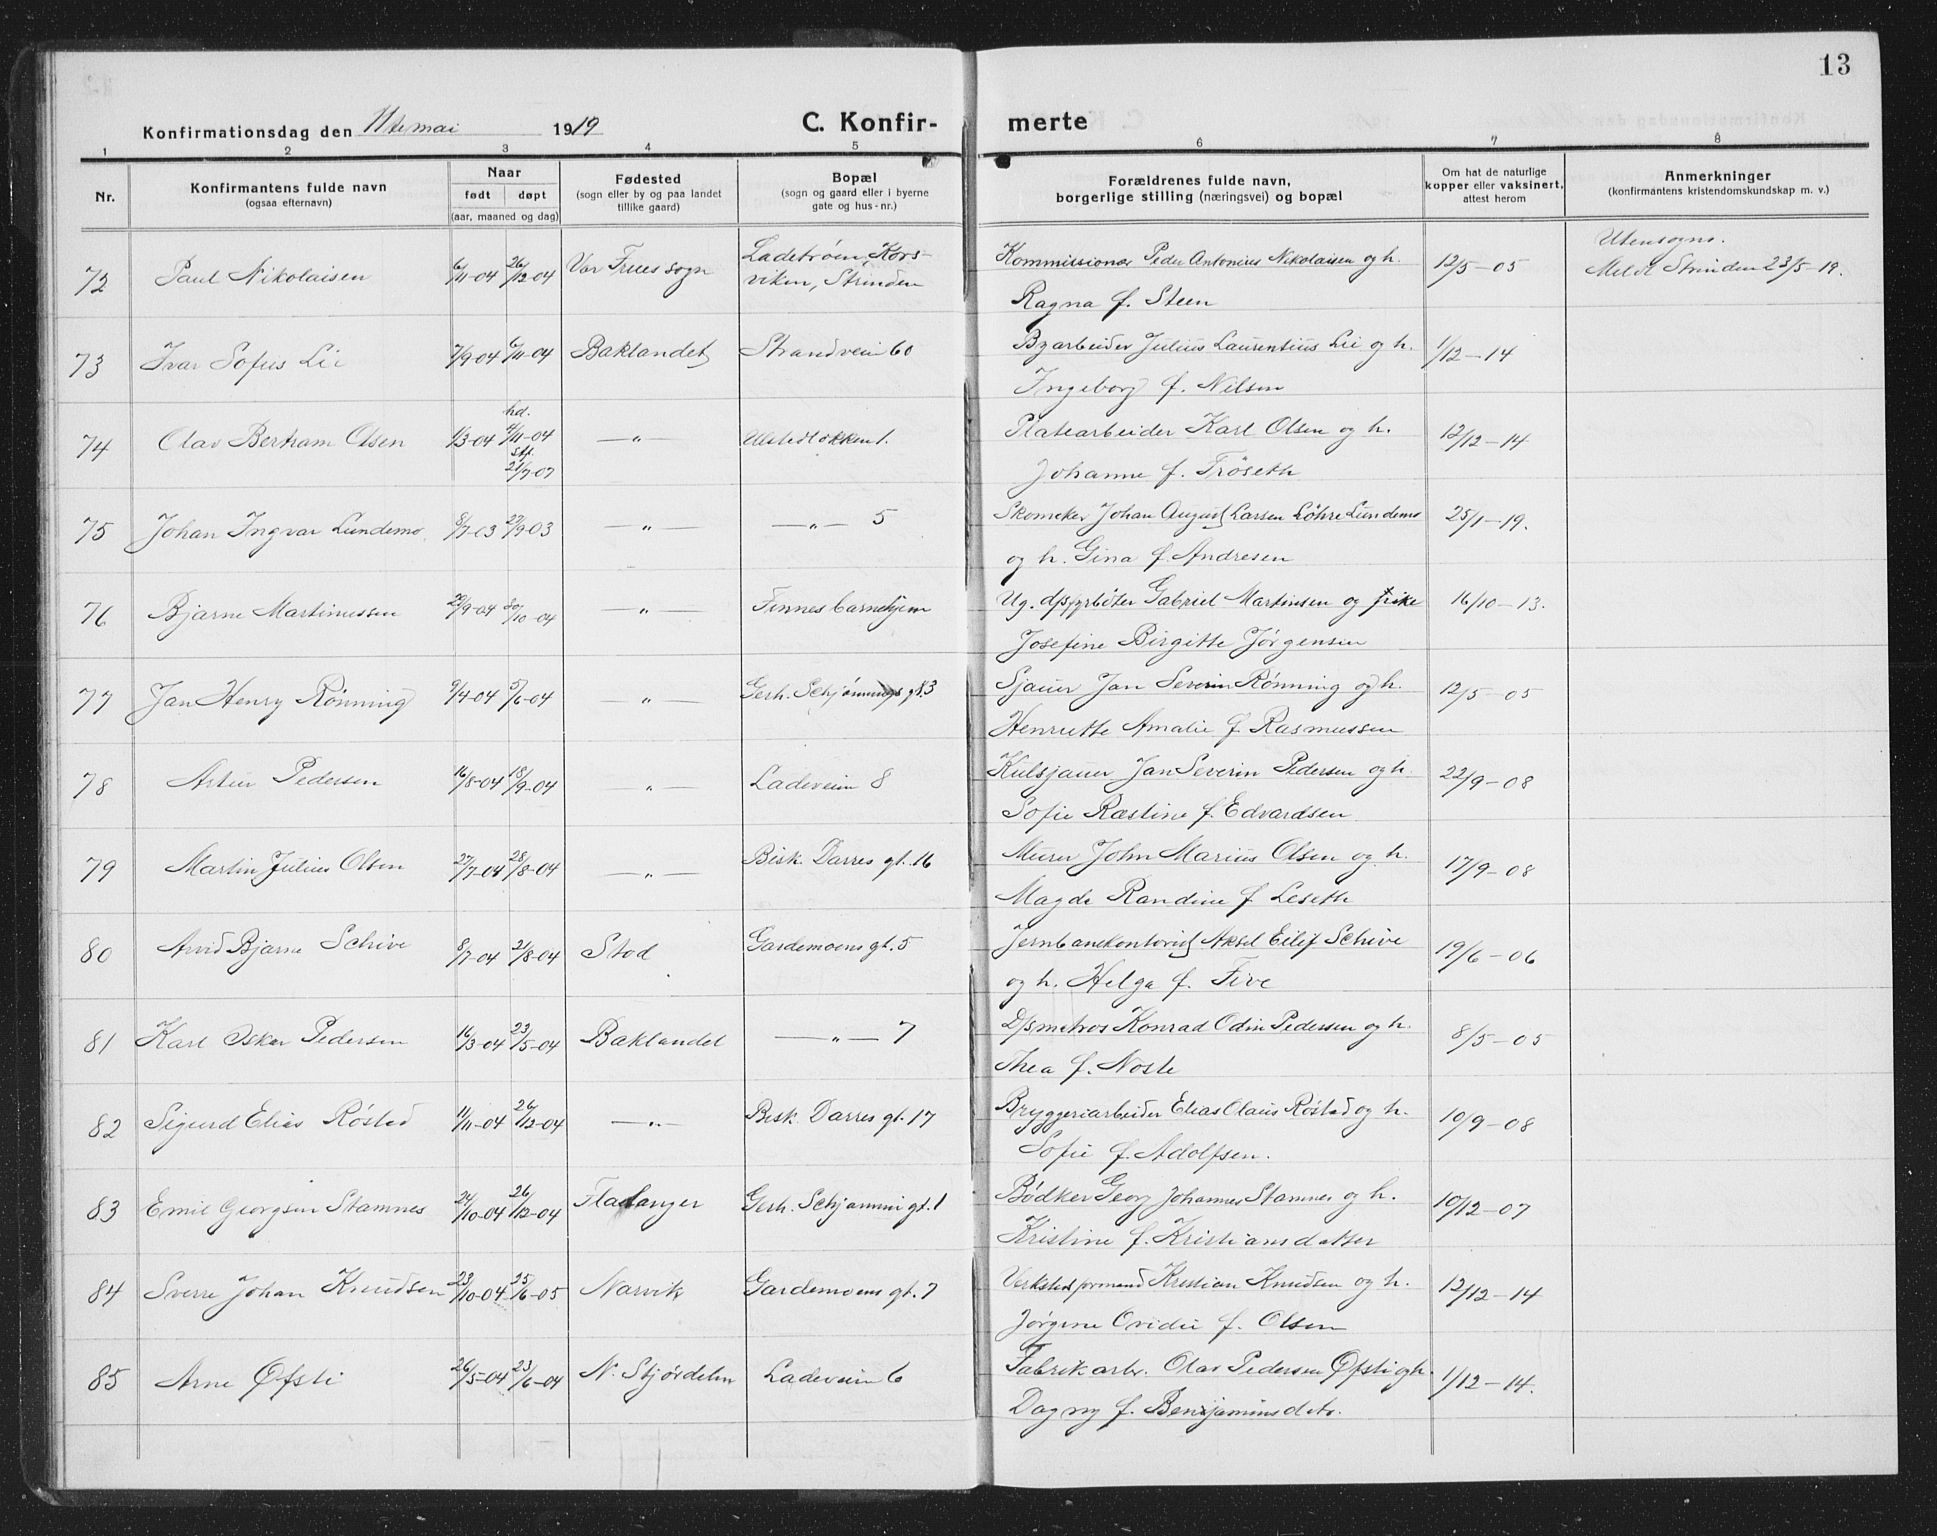 13
Konfirmationsdag den 11te mai 1919 C. Konfirmerte
1 2 3 4 5 6 7 8
Nr. Konfirmantens fulde navn (ogsaa efternavn) Naar født døpt (aar, maaned og dag) Fødested (sogn eller by og paa landet tillike gaard) Bopæl (sogn og gaard eller i byerne gate og hus-nr.) Forældrenes fulde navn, borgerlige stilling (næringsvei) og bopæl Om hat de naturlige kopper eller vaksinert, attest herom Anmerkninger (konfirmantens kristendomskundskap m. v.)
72 Paul Nikolaisen 6/11-04 26/12-04 Vor Frues sogn Ladetrøen, Kors-
viken, Strinden Kommissionær Peder Antonius Nikolaisen og h.
Ragna f. Steen 12/5-05 Utensogns.
Meldt Strinden 23/5-19.
73 Ivar Sofus Lie 7/9-04 6/11-04 Baklandet Strandveien 60 Byarbeider Julius Laurentius Lie og h.
Ingeborg f. Nilsen 1/12-14
74 Olav Bertram Olsen 1/3-04 hd. 4/11-04 stf. 21/7-07 —„— Ulstedløkken 1. Platearbeider Karl Olsen og h.
Johanne f. Trøseth 12/12-14
75 Johan Ingvar Lundemo 8/7-03 27/9-03 —„— —„— 5 Skomaker Johan August Larsen Løhre Lundemo
og h. Gina f. Andresen 25/1-19.
76 Bjarne Martinussen 29/9-04 30/10-04 —„— Finnes barnehjem Ug. Gabriel Martinsen og pike
Josefine Birgitte Jørgensen 16/10-13.
77 Jan Henry Rønning 9/4-04 5/6-04 —„— Gerh. Schjønnings gt. 3 Sjauer Jan Severin Rønning og h.
Henriette Amalie f. Rasmussen 12/5-05
78 Artur Pedersen 16/8-04 18/9-04 —„— Ladeveien 8 Kulsjauer Jan Severin Pedersen og h.
Sofie Rastine f. Edvardsen 22/9-08
79 Martin Julius Olsen 27/7-04 28/8-04 —„— Bisk. Darres gt. 16 Murer John Marius Olsen og h.
Magda Randine f. Leseth 17/9-08
80 Arvid Bjarne Schive 8/7-04 21/8-04 Stod Gardemoens gt. 5 Jernbanekontorist Aksel Eilif Schive
og h. Helga f. Five 19/6-06
81 Karl Oskar Pedersen 16/3-04 23/5-04 Baklandet —„— 7 D/smatros Konrad Odin Pedersen og h.
Thea f. Noste 8/5-05
82 Sigurd Elias Røstad 11/11-04 26/12-04 —„— Bisk. Darres gt. 17 Bryggeriarbeider Elias Olaus Røstad og h.
Sofie f. Adolfsen. 10/9-08
83 Emil Georgsen Stamnes 24/10-04 26/12-04 Flatanger Gerh. Schjønnin gt. 1 Bødker Georg Johannes Stamnes og h.
Kristine f. Kristiansdatter 10/12-07
84 Sverre Johan Knudsen 23/10-04 25/6-05 Narvik Gardemoens gt. 7 Verkstedformand Kristian Knudsen og h.
Jørgine Ovidie f. Olsen 12/12-14
85 Arne Øfsti 26/5-04 23/6-04 N. Stjørdalen Ladeveien 6 Fabrikarb. Olav Pedersen Øfsti og h.
Dagny f. Benjaminsdatr. 1/12-14.